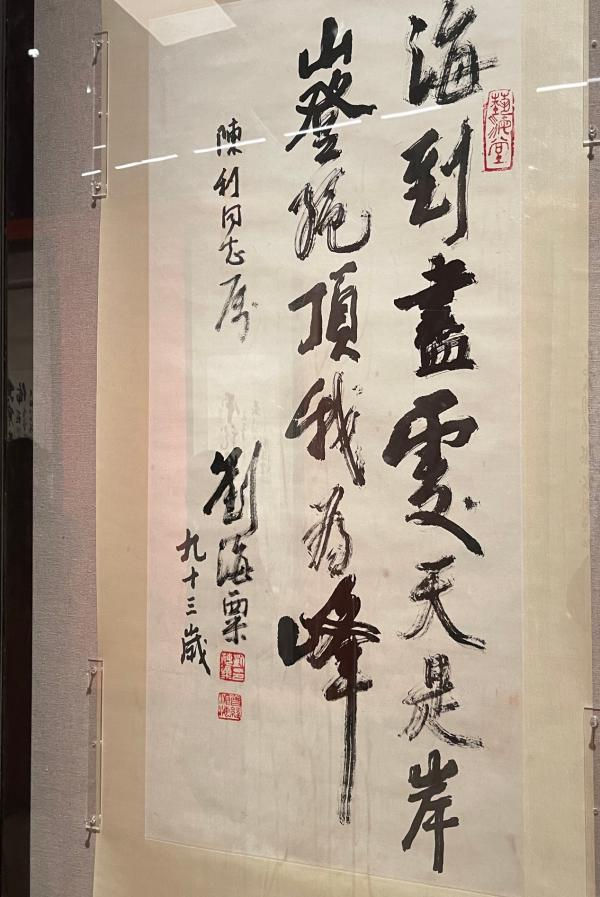 海到盡處天是岸
山登絶頂我為峰
陳利同志屬
劉海粟
九十三歲
藝海堂